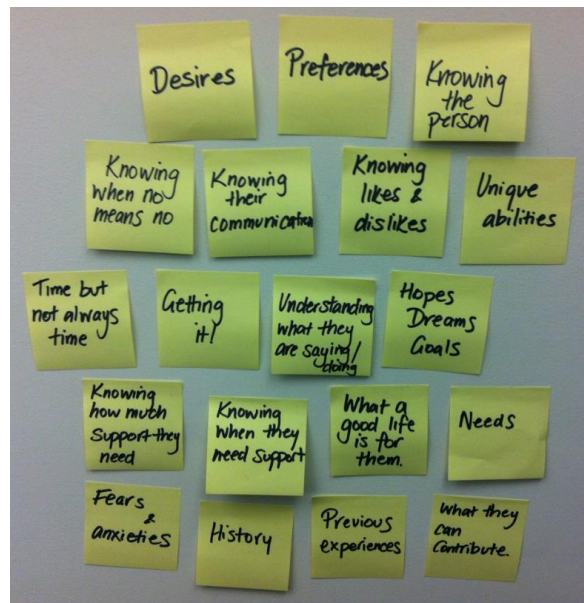 Desires
Preferences
Knowing
the
person
Knowing
when no
means no
Knowing
their
communication
Knowing
likes &
dislikes
Unique
abilities
Time but
not always
time
Getting
it!
Understanding
what they
are saying/
doing
Hopes
Dreams
Goals
Knowing
how much
Support they
need
Knowing
when they
need support
What a
good life
is for
them.
Needs
Fears
&
anxieties
History
Previous
experiences
What they
can
Contribute.